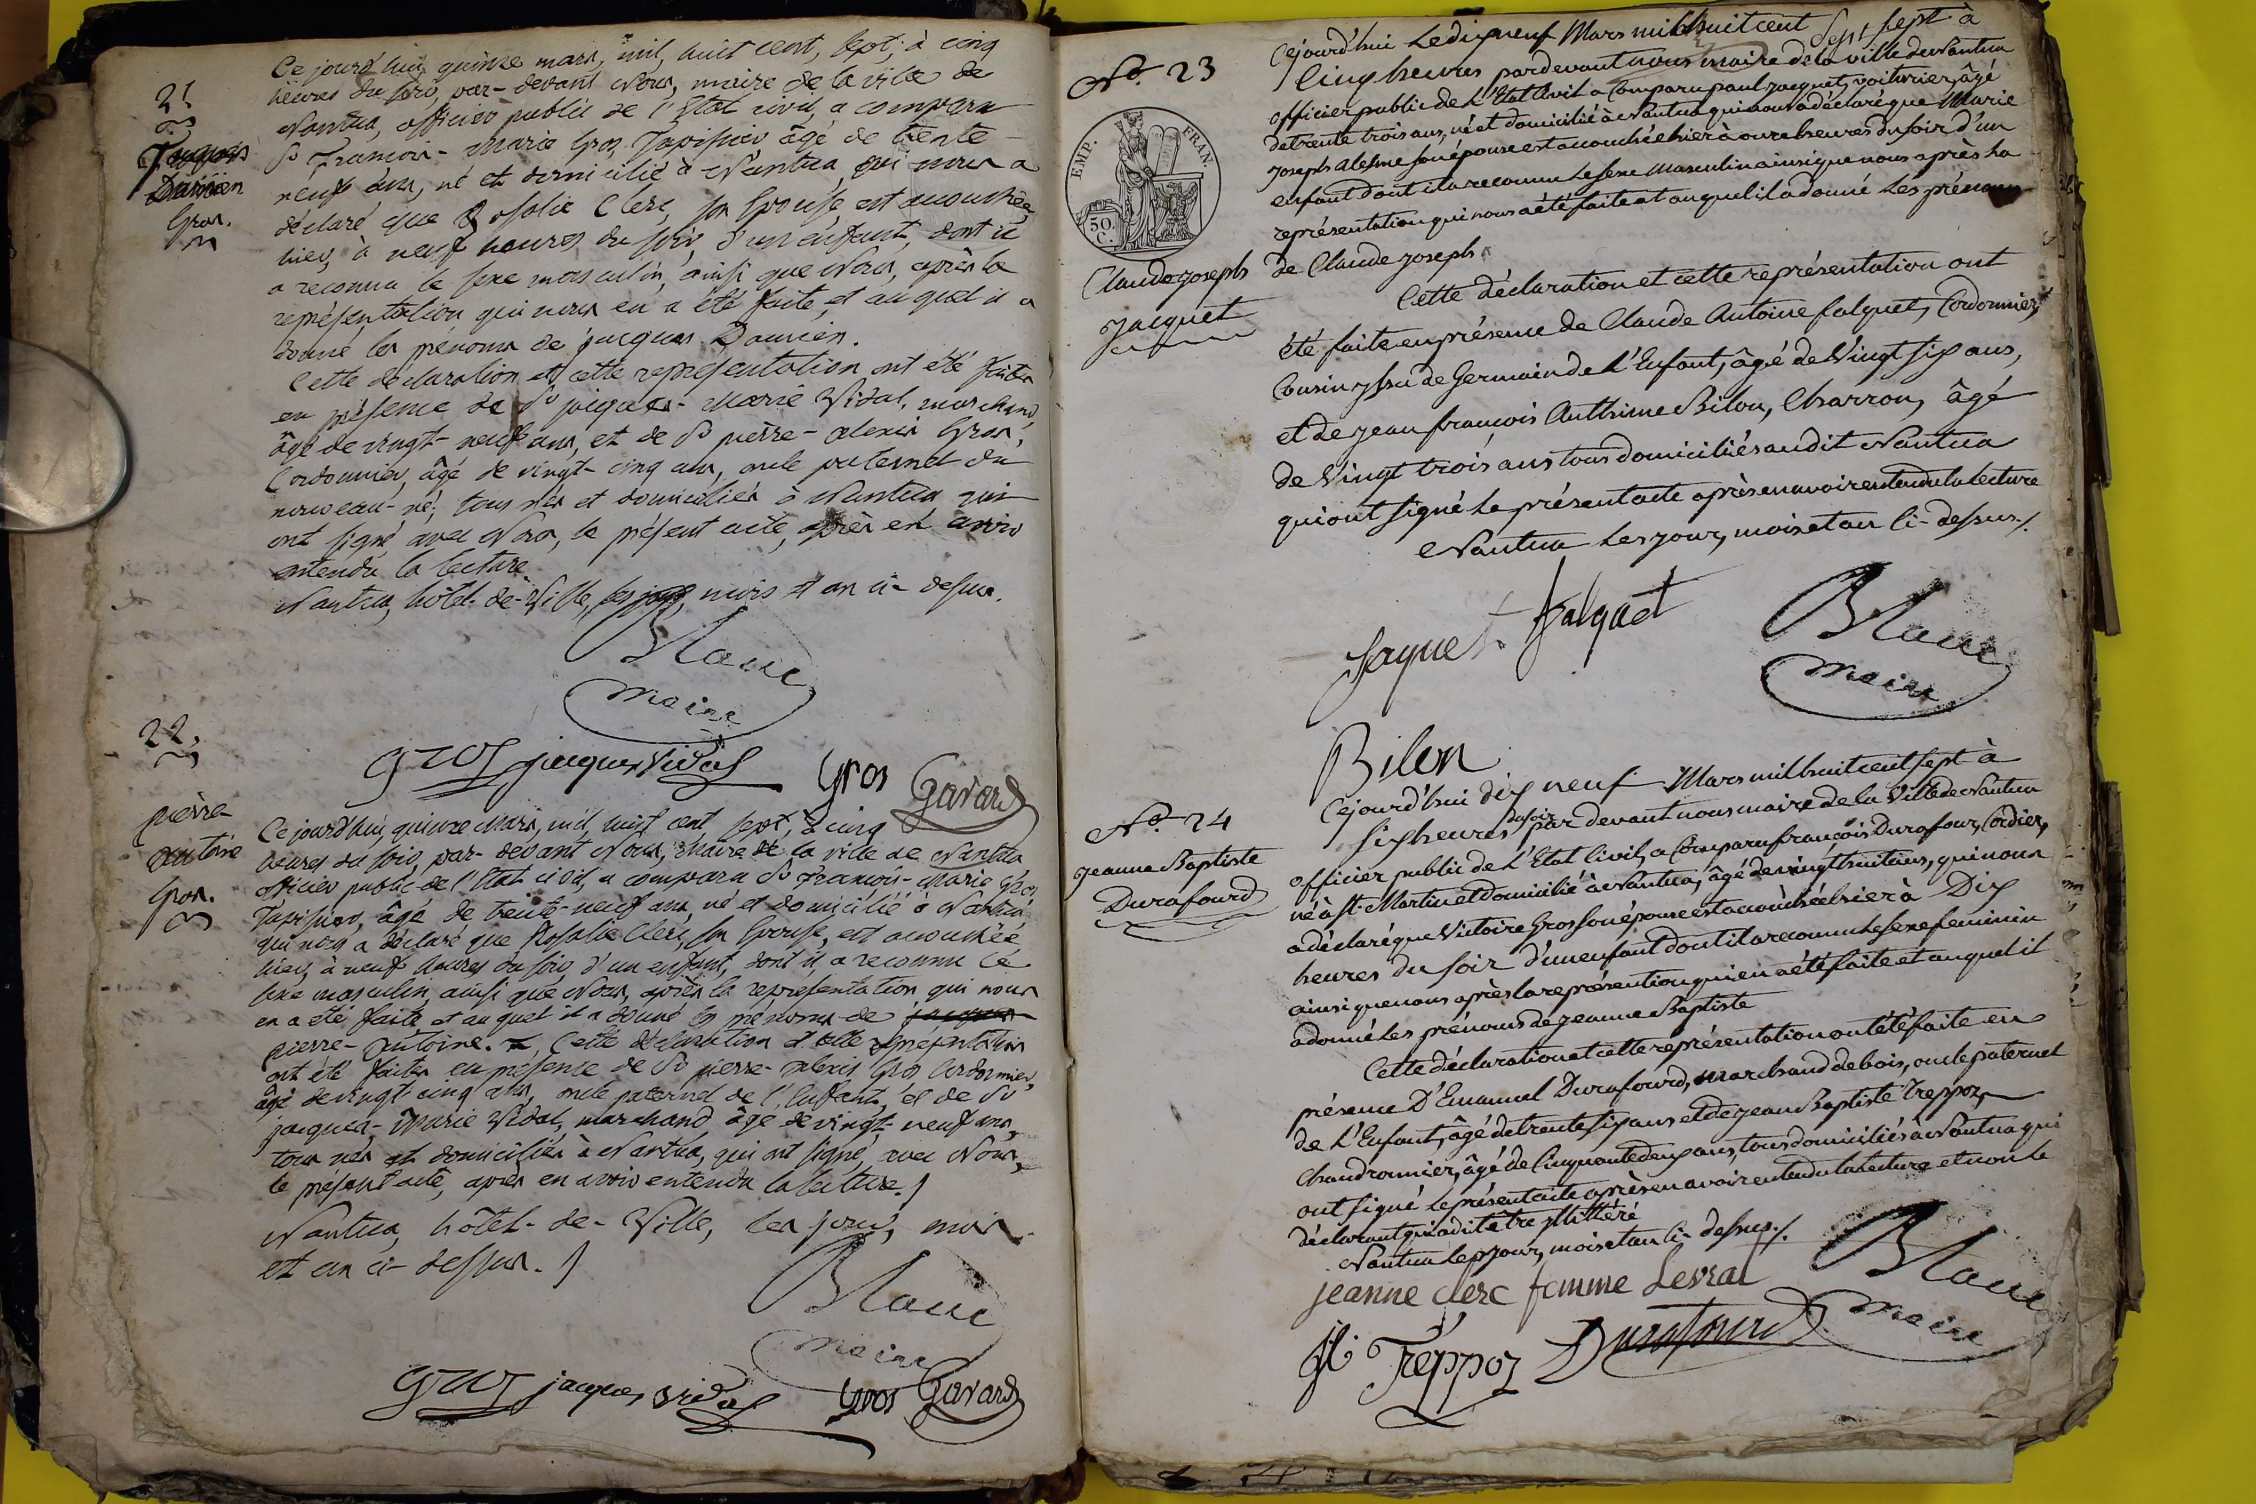 21
Jacques
Damien
Gros.
Ce jourd'hui, quinze mars, mil, huit cent, sept, à cinq
heures du soir, par-devant Nous, maire de la ville de
Nantua, officier public de l'Etat civil, a comparu
Sr François-Marie Gros, Tapissier âgé de trente
neuf ans, né et domicilié à Nantua, qui nous a
déclaré que Rosalie Clerc, son Epouse, est accouchée
hier, à neuf heures du soir, d'un enfant, dont il
a reconnu le sexe masculin, ainsi que Nous, après la
représentation qui nous en a été faite, et auquel il a
donné les prénoms de jacques Damien.
Cette déclaration et cette représentation ont été faites
en présence de Sr jacques-Marie Vidal, marchand,
âgé de vingt-neuf ans, et de Sr pierre-alexis Gros,
Cordonnier, âgé de vingt-cinq ans, oncle paternel du
nouveau-né; tous nés et domiciliés à Nantua qui
ont signé avec Nous, le présent acte, après en avoir
entendu la lecture.
Nantua, hôtel-de-Ville, les jour, mois et an ci-dessus.
Blanc
maire
gros jacques Vidal Gros Gavard
22.
pierre
antoine
Gros.
Ce jourd'hui, quinze mars, mil, huit cent, sept, à cinq
heures du soir, par-devant Nous, Maire de la ville de Nantua
officier public de l'Etat civil, a comparu Sr François-Marie Gros
Tapissier, âgé de trente-neuf ans, né et domicilié à Nantua
qui nous a déclaré que Rosalie Clerc, son Epouse, est accouchée
hier, à neuf heures du soir, d'un enfant, dont il a reconnu le
sexe masculin, ainsi que Nous, après la représentation qui nous
en a été faite et auquel il a donné les prénoms de jacques
pierre-antoine. Cette déclaration et cette représentation
ont été faites en présence de Sr pierre-alexis Gros Cordonnier,
âgé de vingt cinq ans, oncle paternel de l'Enfant, et de Sr
jacques-Marie Vidal, marchand âgé de vingt-neuf ans,
tous nés et domiciliés à Nantua, qui ont signé, avec Nous,
le présent acte, après en avoir entendu la lecture.
Nantua, hôtel-de-Ville, les jour, mois
et an ci-dessus.
Blanc
maire
gros jacques vidal Gros Gavard
No. 23
EMP. FRAN.
50.
C.
Claude joseph
jacquet
Cejourd'hui Le dix neuf Mars mil huit cent Sept sept à
Cinq heures pardevant nous maire de la ville de Nantua
officier public de L'Etat Civil a Comparu paul jacquet, voiturier, âgé
de trente trois ans, né et domicilié à Nantua qui nous a déclaré que Marie
joseph alesme son épouse est accouchée hier à onze heures du soir d'un
enfant dont il a reconnu le sexe Masculin ainsi que nous après la
représentation qui nous a été faite et auquel il a donné Les prénoms
de Claude joseph.
Cette déclaration et cette représentation ont
été faite en présence de Claude Antoine falquet, Cordonnier,
Cousin yssu de Germain de L'Enfant, âgé de Vingt six ans,
et de jean françois Anthime Bilon, Charron, âgé
de Vingt trois ans tous domiciliés audit Nantua
qui ont signé Le présent acte après en avoir entendu la Lecture
Nantua Les jour, mois et an Ci-dessus./.
Jaquet falquet Blanc
maire
Bilon
No. 24
jeanne Baptiste
Durafourd
Cejourd'hui dix neuf Mars mil huit cent sept à
six heures du soir par devant nous maire de la Ville de Nantua
officier public de L'Etat Civil, a Comparu françois Durafour, Cordier,
né à St. Martin et domicilié à Nantua, âgé de vingt huit ans, qui nous
a déclaré que Victoire Gros son épouse est accouchée hier à Dix
heures du soir d'un enfant dont il a reconnu le sexe feminin
ainsi que nous après la représention qui en a été faite et auquel il
a donné Les prénoms de jeanne Baptiste
Cette déclaration et cette représentation ont été faite en
présence D'Emanuel Durafourd, marchand de bois, oncle paternel
de L'Enfant, âgé de trente six ans et de jean Baptiste Treppoz,
Chaudronnier, âgé de Cinquante deux ans, tous domiciliés à Nantua qui
ont signé Le présent acte après en avoir entendu la Lecture et non le
déclarant qui a dit être yllittéré
Nantua Les jour, mois et an Ci-dessus./.
jeanne clerc femme Levrat Blanc
maire
Treppoz Durafourd